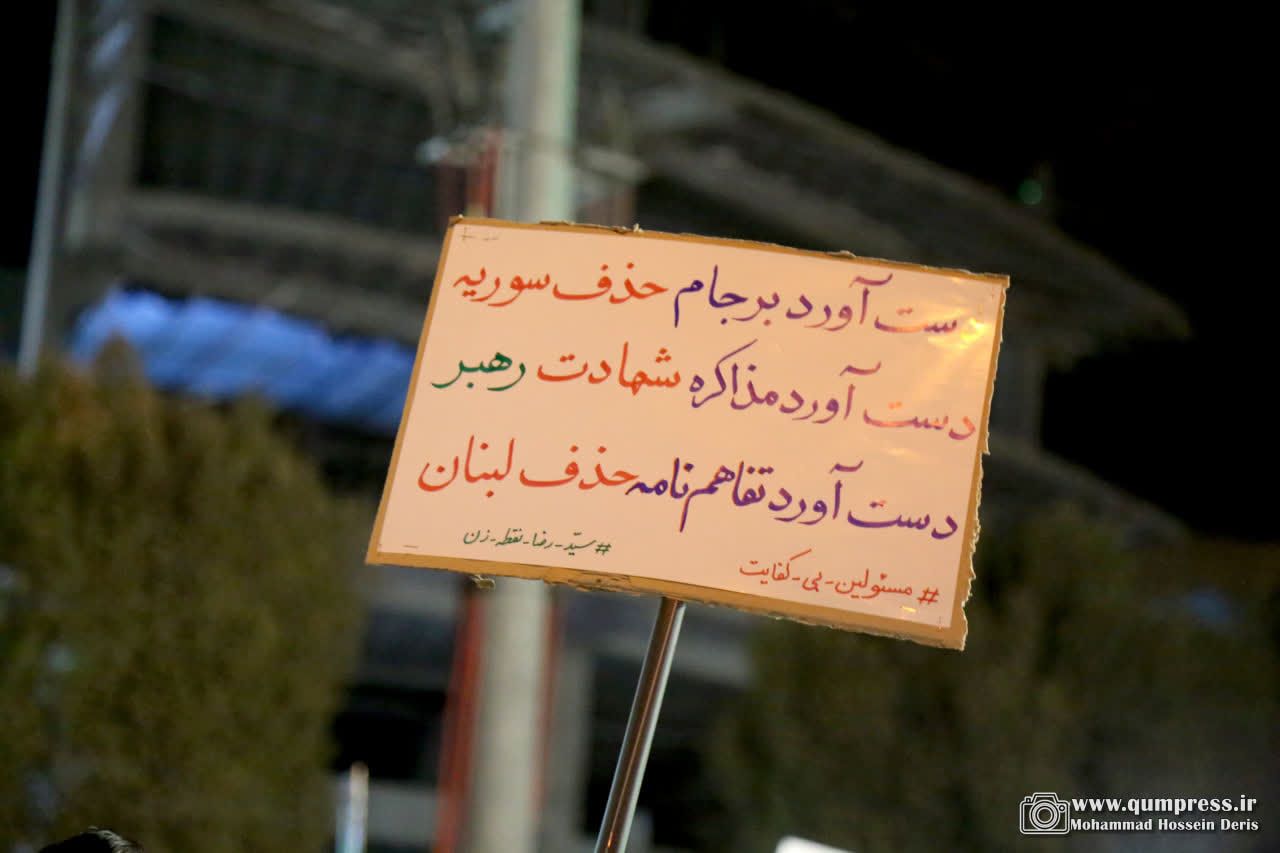 دست آورد برجام حذف سوریه
دست آورد مذاکره شهادت رهبر
دست آورد تفاهم نامه حذف لبنان
#مسئولین-بی-کفایت
#سیّد-رضا-نقطه-زن
www.qumpress.ir
Mohammad Hossein Deris